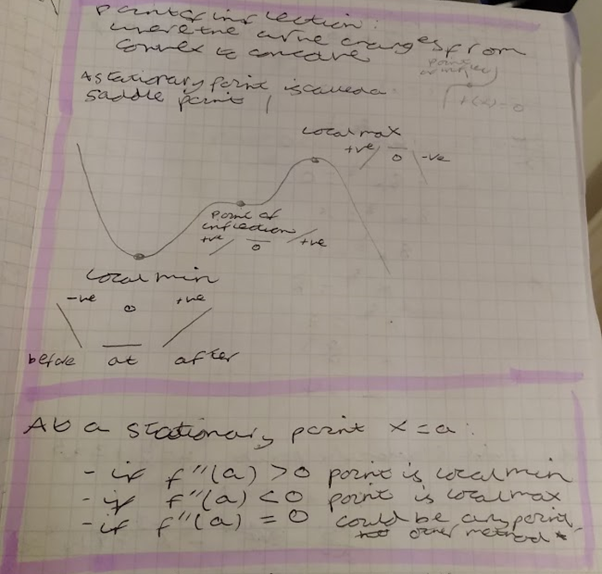 point of inflection:
where the curve changes from
convex to concave
A stationary point is called a
saddle point
point
of inflec
f'(x)=0
local max
+ve 0 -ve
point of
inflection
+ve 0 +ve
local min
-ve 0 +ve
before at after
At a stationary point x=a:
- if f''(a) >0 point is local min
- if f''(a) <0 point is local max
- if f''(a) = 0 could be any point,
other method *